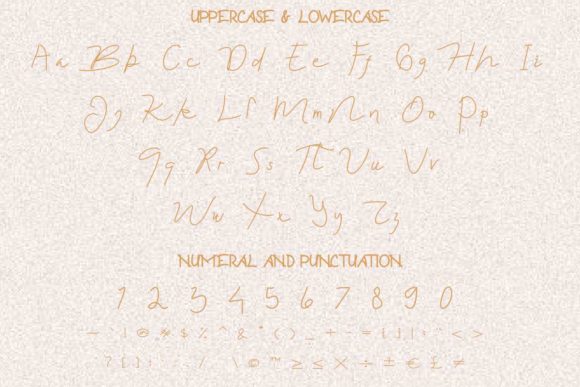 UPPERCASE & LOWERCASE
Aa Bb Cc Dd Ee Ff Gg Hh Ii
Jj Kk Ll Mm Nn Oo Pp
Qq Rr Ss Tt Uu Vv
Ww Xx Yy Zz
NUMERAL AND PUNCTUATION
1 2 3 4 5 6 7 8 9 0
| @ # $ % ^ & * ( ) _ + - = { } [ ] : ; " < >
? [ ] \ © ™ ≥ ≤ × ÷ ± = £ ≠